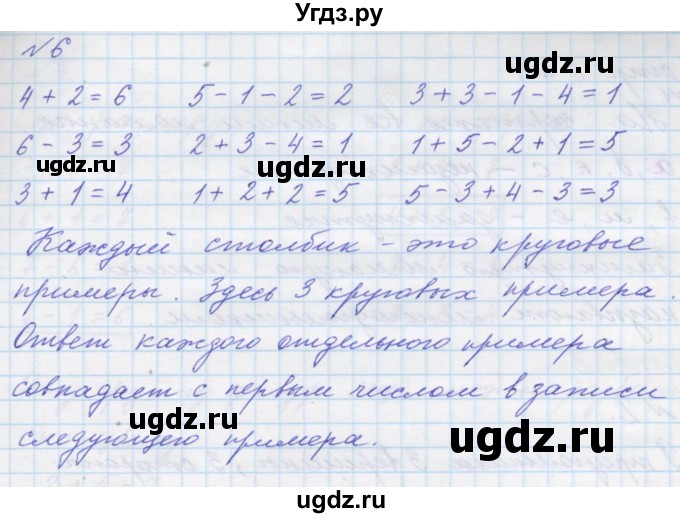 Угдз.ру
№6
ugdz.ru ugdz.ru
4 + 2 = 6 5 - 1 - 2 = 2 3 + 3 - 1 - 4 = 1
6 - 3 = 3 2 + 3 - 4 = 1 1 + 5 - 2 + 1 = 5
ugdz.ru
3 + 1 = 4 1 + 2 + 2 = 5 5 - 3 + 4 - 3 = 3
Каждый столбик - это круговые
примеры. Здесь 3 круговых примера.
ugdz.ru
Ответ каждого отдельного примера
совпадает с первым числом в записи
ugdz.ru
следующего примера.
ugdz.ru
ugdz.ru